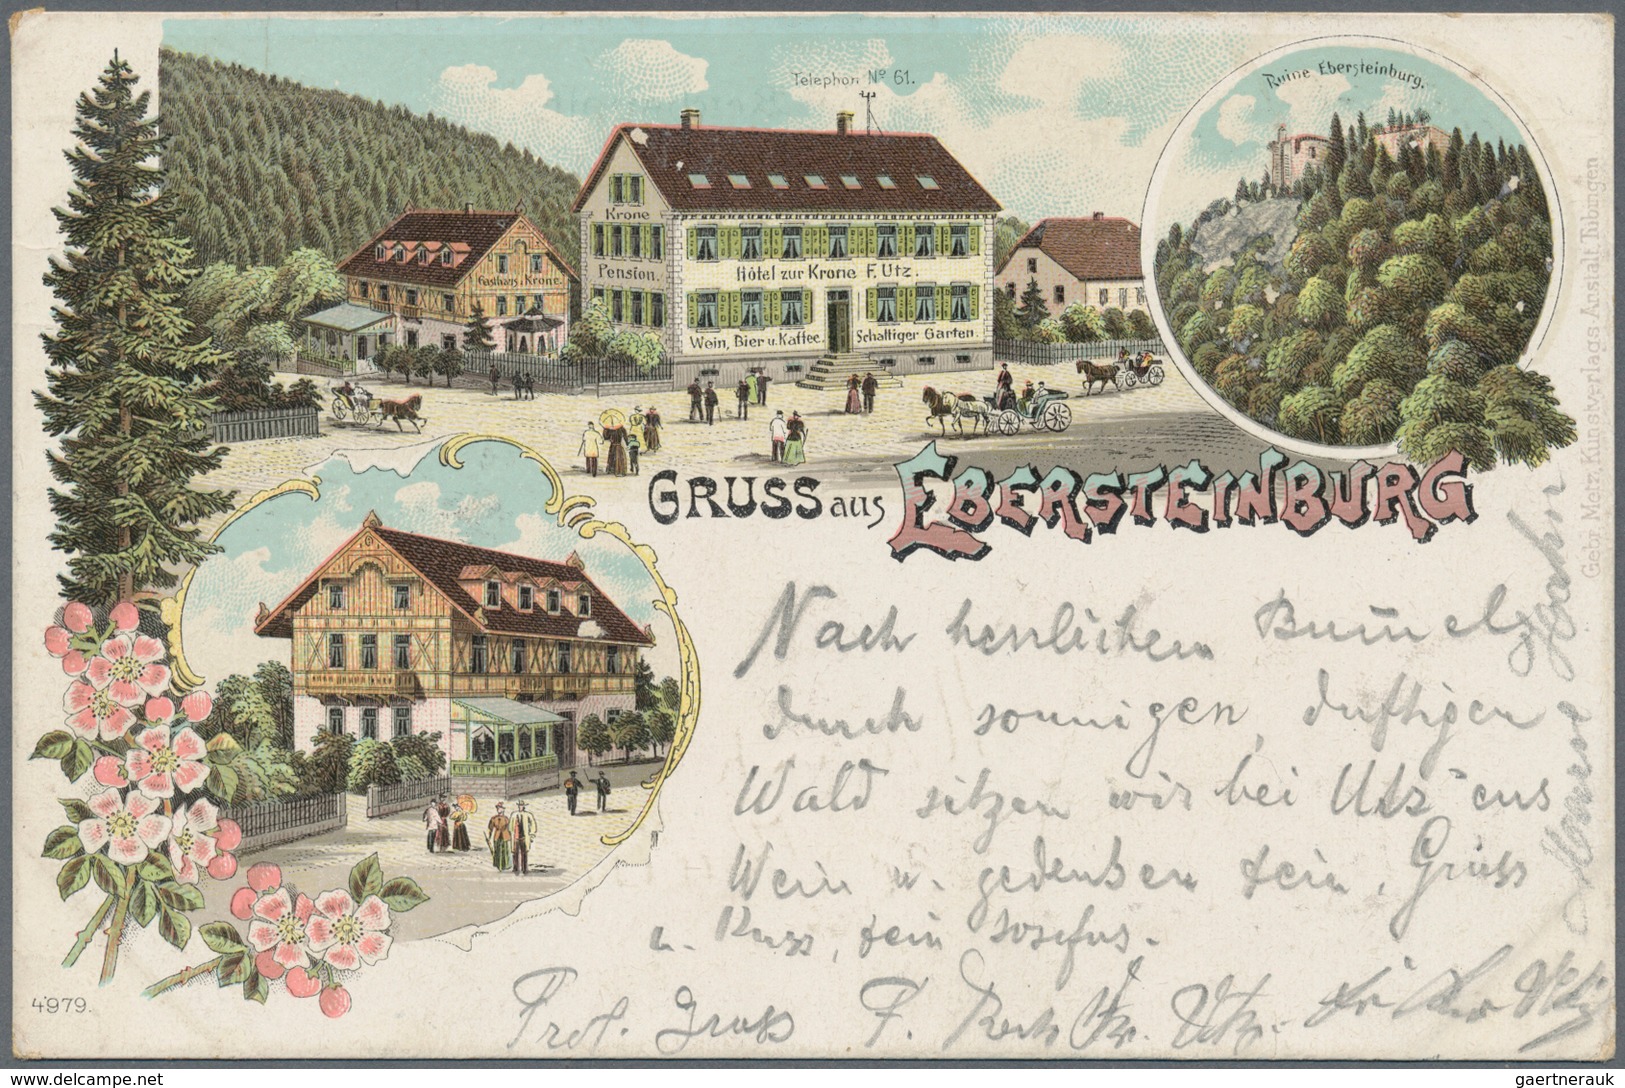 Telephon Nº 61.
Ruine Ebersteinburg.
Krone
Pension.
Gasthaus z. Krone
Hôtel zur Krone F. Utz.
Wein, Bier u. Kaffee. Schattiger Garten.
GRUSS aus EBERSTEINBURG
Gebr. Metz, Kunstverlags-Anstalt, Tübingen
Nach herrlichem Bummel
durch sonnigen, duftigen
Wald sitzen wir bei Utz
Wein u. gedenken dein. Gruss
u. Kuss, dein Josefus.
Prof. Gross F.
4979.
© delcampe.net
gaertnerauk